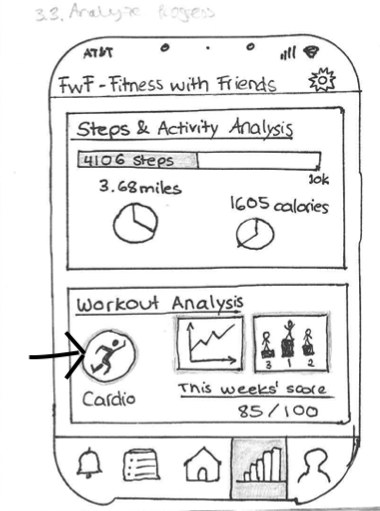 3.3. Analyze Progress
AT&T
FwF - Fitness with Friends
Steps & Activity Analysis
4106 steps
10k
3.68 miles
1605 calories
Workout Analysis
3 1 2
Cardio
This weeks' score
85/100